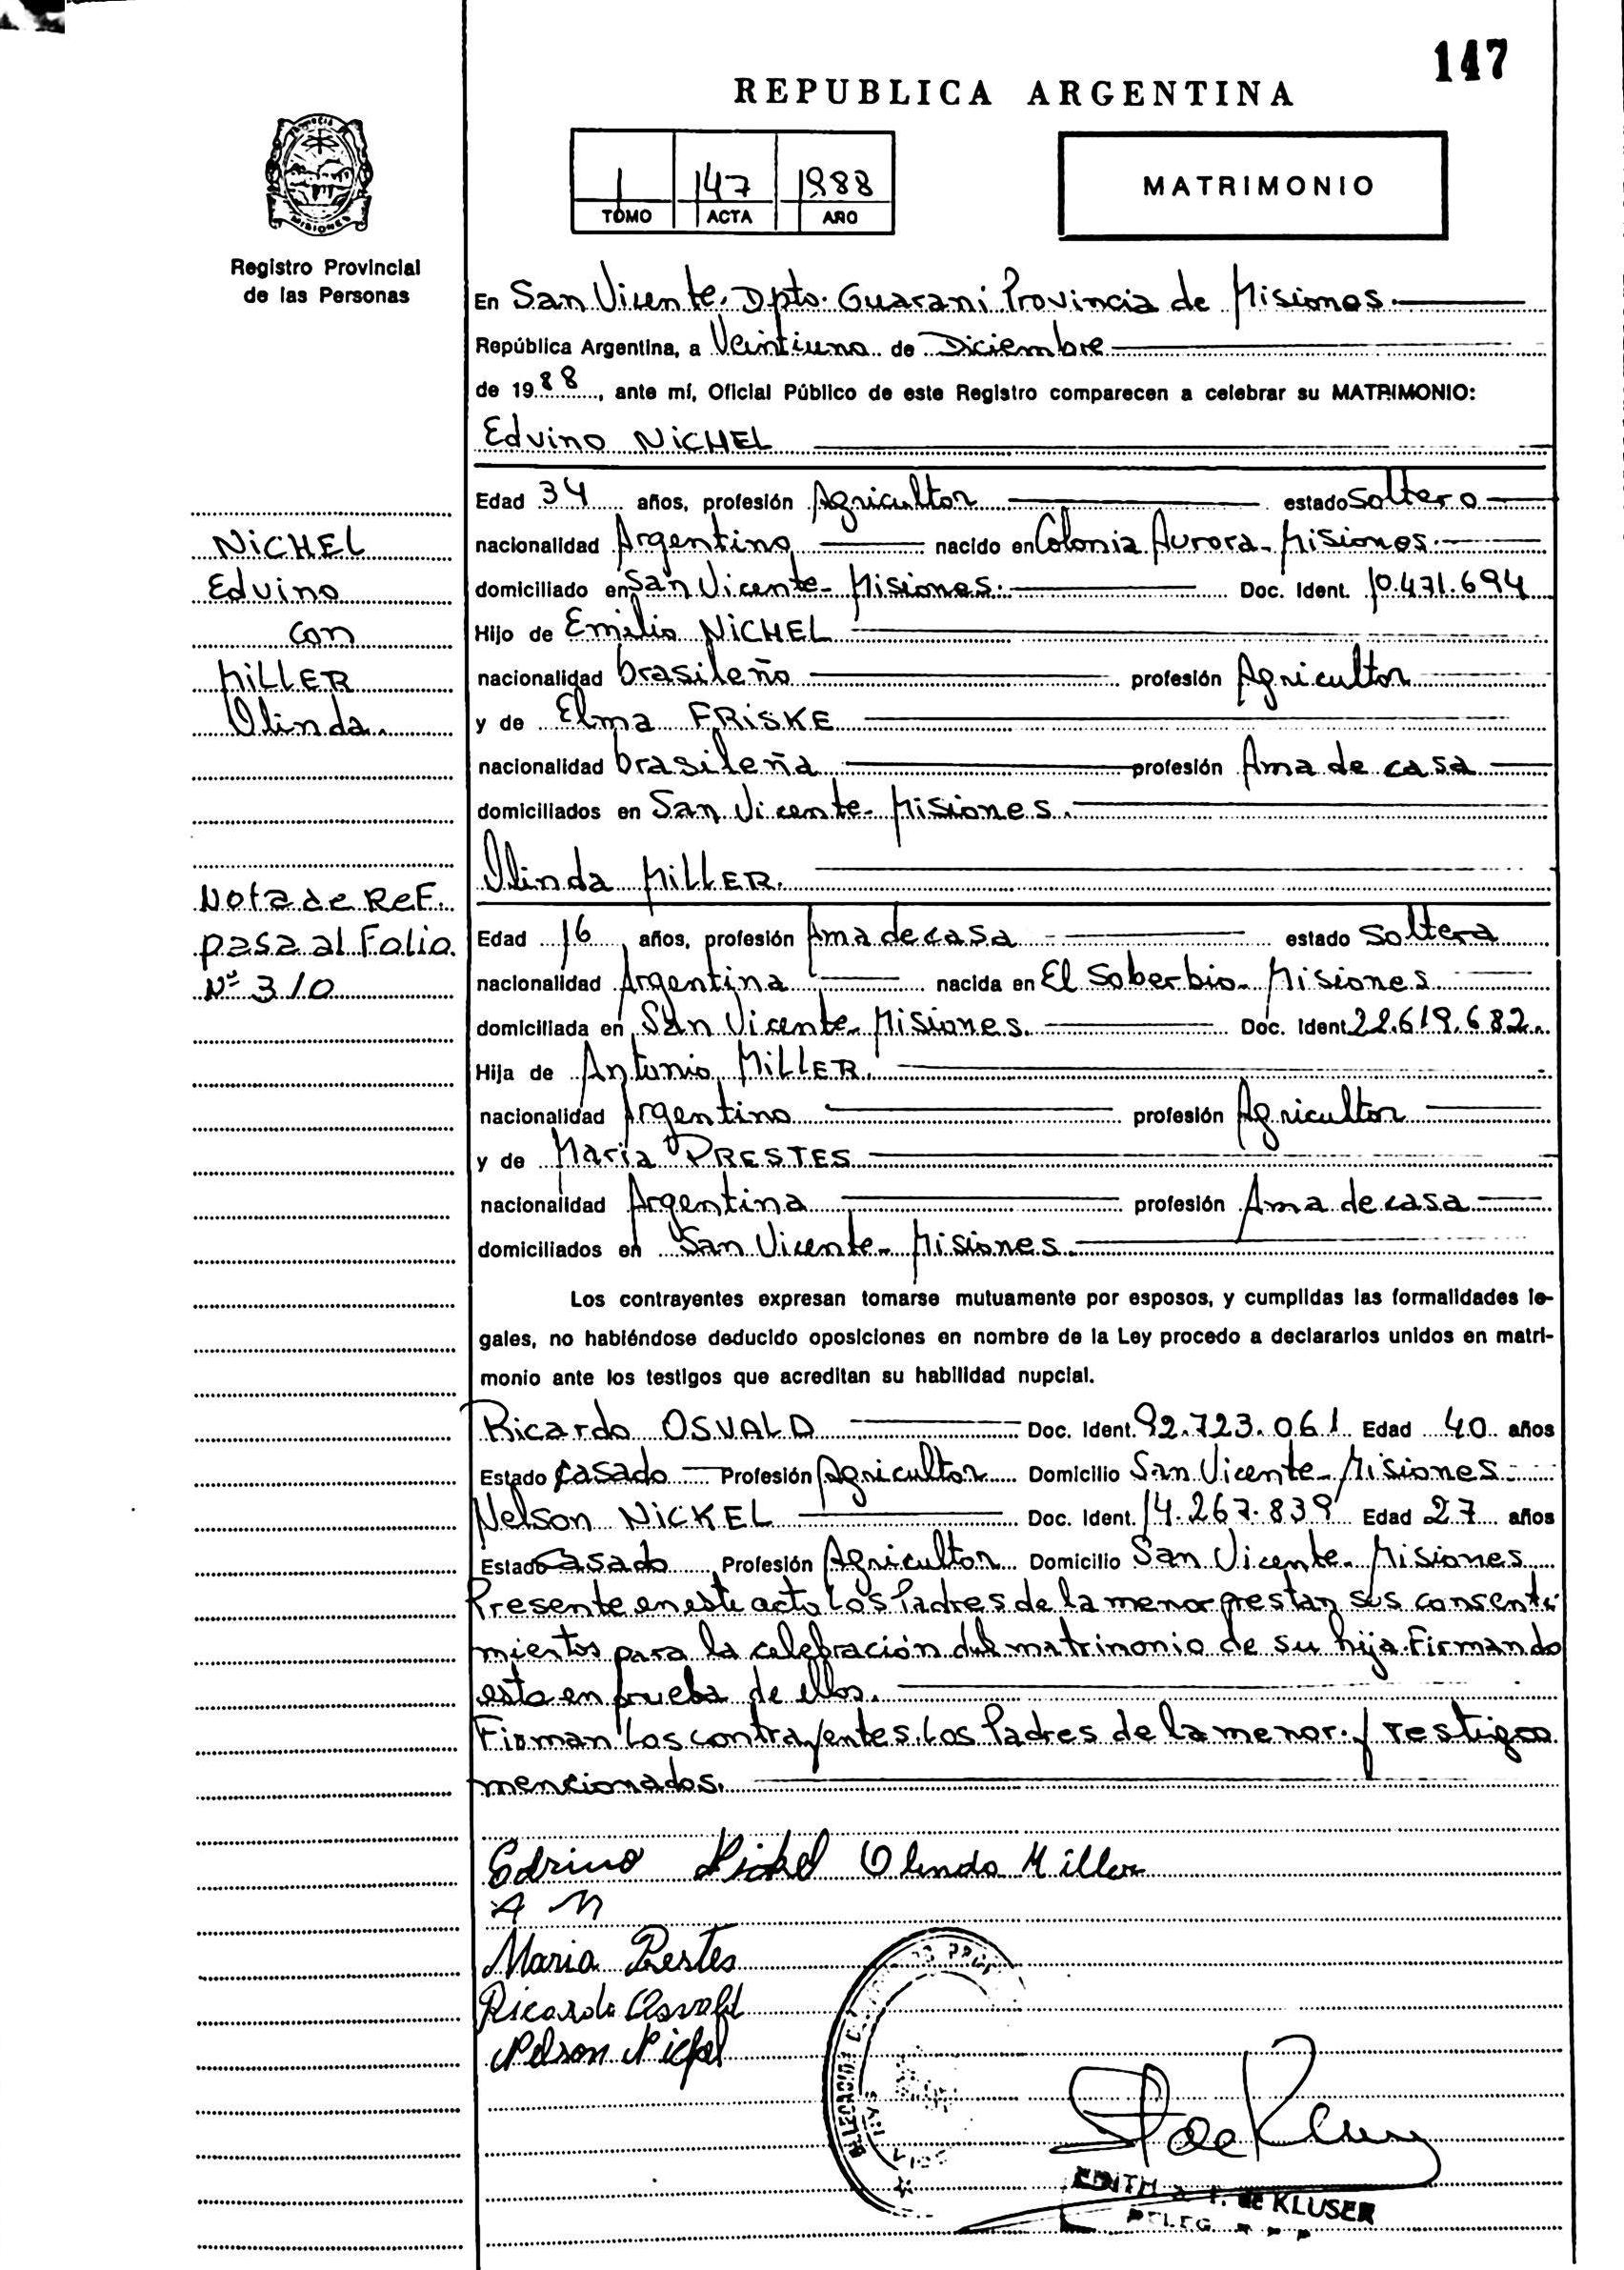 147
REPUBLICA ARGENTINA
1 147 1988
TOMO ACTA AÑO
MATRIMONIO
MISIONES
Registro Provincial
de las Personas
En San Vicente. Dpto. Guarani Provincia de Misiones
República Argentina, a Veintiuno de Diciembre
de 1988, ante mí, Oficial Público de este Registro comparecen a celebrar su MATRIMONIO:
Edvino NiCHEL
Edad 34 años, profesión Agricultor estado Soltero
nacionalidad Argentino nacido en Colonia Aurora - Misiones
domiciliado en San Vicente - Misiones. Doc. Ident. 10.471.694
Hijo de Emilio NiCHEL
nacionalidad brasileño profesión Agricultor
y de Elma FRiSKE
nacionalidad brasileña profesión Ama de casa
domiciliados en San Vicente - Misiones.
NiCHEL
Edvino
con
MiLLER
Olinda.
Olinda MiLLER.
Nota de ReF.
pasa al Folio
Nº 310
Edad 16 años, profesión Ama de casa estado Soltera
nacionalidad Argentina nacida en El Soberbio - Misiones
domiciliada en San Vicente - Misiones. Doc. Ident 22.619.682.
Hija de Antonio MiLLER.
nacionalidad Argentino profesión Agricultor
y de Maria PRESTES
nacionalidad Argentina profesión Ama de casa
domiciliados en San Vicente - Misiones.
Los contrayentes expresan tomarse mutuamente por esposos, y cumplidas las formalidades le-
gales, no habiéndose deducido oposiciones en nombre de la Ley procedo a declararlos unidos en matri-
monio ante los testigos que acreditan su habilidad nupcial.
Ricardo OSVALD Doc. Ident. 92.723.061 Edad 40 años
Estado Casado Profesión Agricultor Domicilio San Vicente - Misiones
Nelson NiCKEL Doc. Ident. 14.267.839 Edad 27 años
Estado Casado Profesión Agricultor Domicilio San Vicente - Misiones
Presente en este acto los Padres de la menor prestan sus consenti-
mientos para la celebración del matrimonio de su hija Firmando
esta en prueba de ellos.
Firman los contrayentes, los Padres de la menor y Testigos
mencionados.
Edvino Nickel Olinda Miller
A M
Maria Prestes
Ricardo Osvald
Nelson Nickel
EDITH de KLUSER